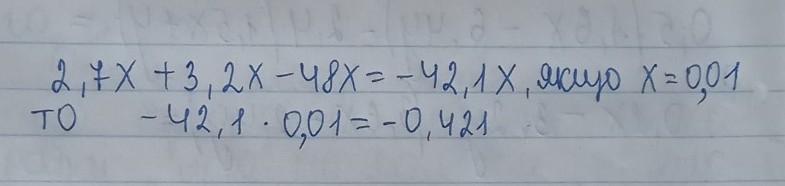 2,7x + 3,2x - 48x = - 42,1x, якщо x = 0,01
то - 42,1 · 0,01 = - 0,421